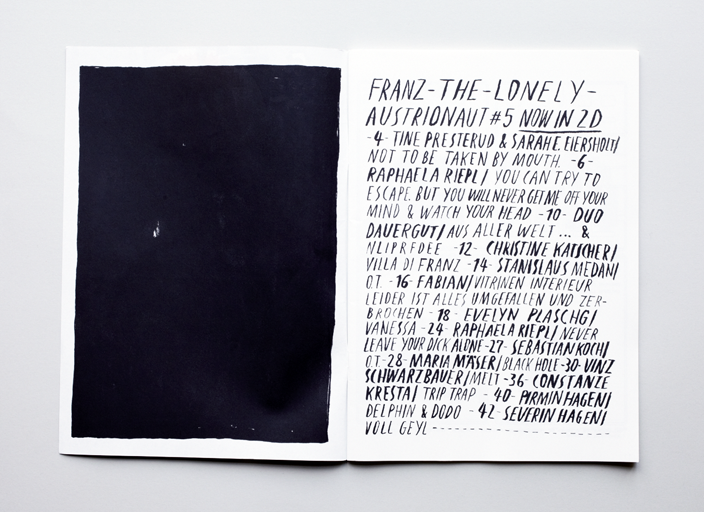 FRANZ-THE-LONELY-
AUSTRIONAUT #5 NOW IN 2D
-4- TINE PRESTERUD & SARAH E. EIERSHOLT/
NOT TO BE TAKEN BY MOUTH. -6-
RAPHAELA RIEPL/ YOU CAN TRY TO
ESCAPE. BUT YOU WILL NEVER GET ME OFF YOUR
MIND & WATCH YOUR HEAD -10- DUO
DAUERGUT/ AUS ALLER WELT ... &
-12- CHRISTINE KATSCHER/
VILLA DI FRANZ -14- STANISLAUS MEDAN/
O.T. -16- FABIAN/ VITRINEN INTERIEUR
LEIDER IST ALLES UMGEFALLEN UND ZER-
BROCHEN -18- EVELYN PLASCHG/
VANESSA -24- RAPHAELA RIEPL/ NEVER
LEAVE YOUR DICK ALONE -27- SEBASTIAN KOCH/
O.T -28- MARIA MÄSER/ BLACK HOLE -30- VINZ
SCHWARZBAUER/ MELT -36- CONSTANZE
KRESTA/ TRIP TRAP -40- PIRMIN HAGEN/
DELPHIN & DODO -42- SEVERIN HAGEN/
VOLL GEYL